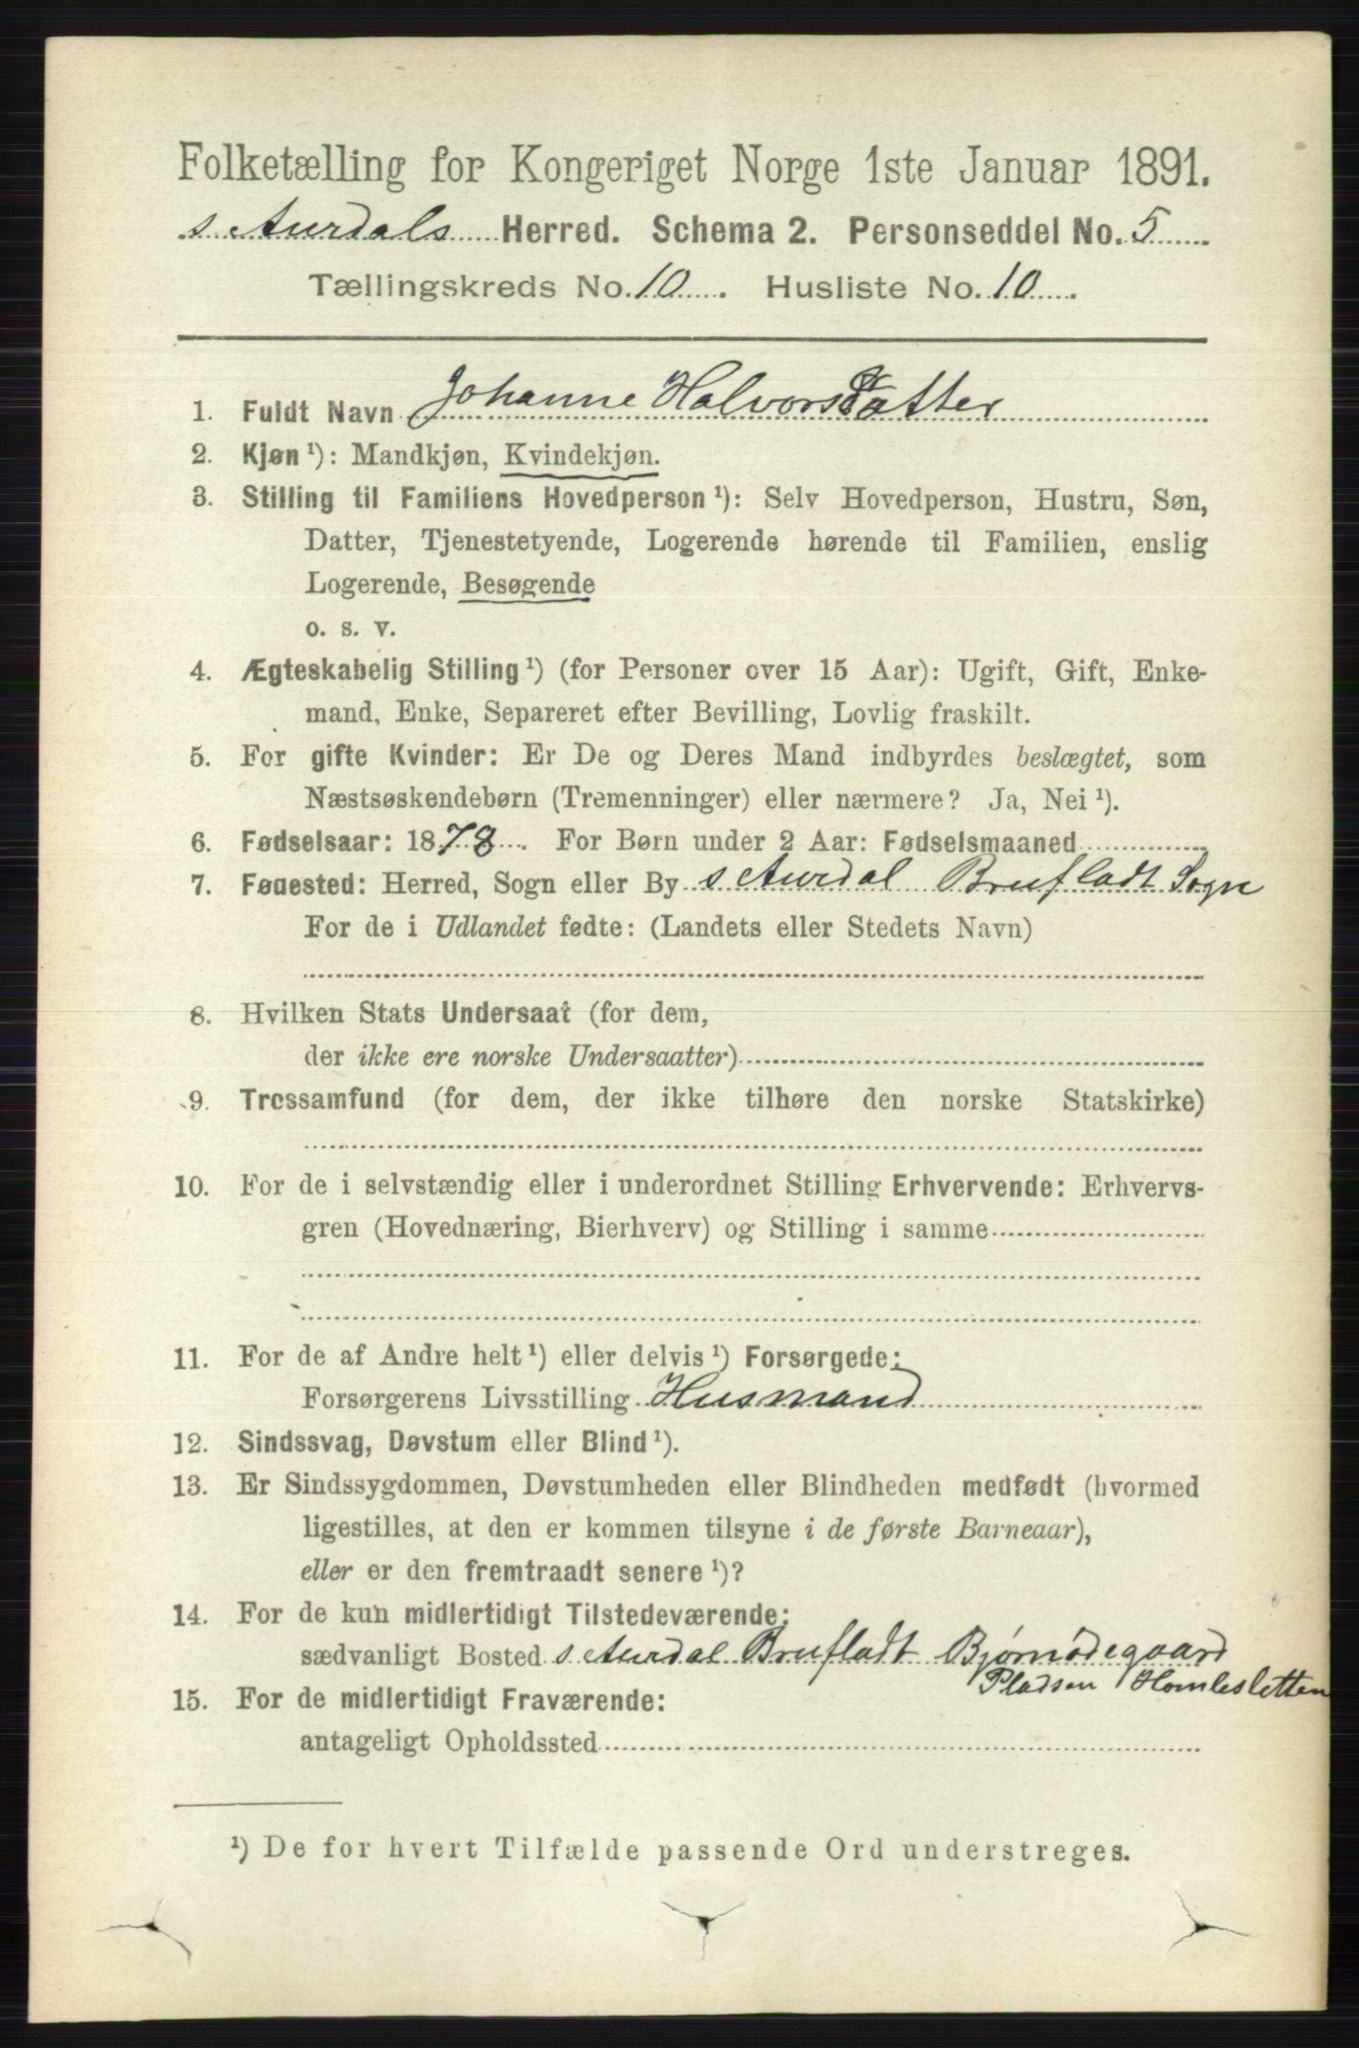 Folketælling for Kongeriget Norge 1ste Januar 1891.
s. Aurdals Herred. Schema 2. Personseddel No. 5
Tællingskreds No. 10. Husliste No. 10.
1. Fuldt Navn Johanne Halvorsdatter
2. Kjøn ¹): Mandkjøn, Kvindekjøn.
3. Stilling til Familiens Hovedperson ¹): Selv Hovedperson, Hustru, Søn,
Datter, Tjenestetyende, Logerende hørende til Familien, enslig
Logerende, Besøgende
o. s. v.
4. Ægteskabelig Stilling ¹) (for Personer over 15 Aar): Ugift, Gift, Enke-
mand, Enke, Separeret efter Bevilling, Lovlig fraskilt.
5. For gifte Kvinder: Er De og Deres Mand indbyrdes beslægtet, som
Næstsøskendebørn (Tremenninger) eller nærmere? Ja, Nei ¹).
6. Fødselsaar: 1878. For Børn under 2 Aar: Fødselsmaaned
7. Føuested: Herred, Sogn eller By s Aurdal Brufladt Sogn
For de i Udlandet fødte: (Landets eller Stedets Navn)
8. Hvilken Stats Undersaat (for dem,
der ikke ere norske Undersaatter)
9. Trossamfund (for dem, der ikke tilhøre den norske Statskirke)
10. For de i selvstændig eller i underordnet Stilling Erhvervende: Erhvervs-
gren (Hovednæring, Bierhverv) og Stilling i samme
11. For de af Andre helt ¹) eller delvis ¹) Forsørgede:
Forsørgerens Livsstilling Husmand
12. Sindssvag, Døvstum eller Blind ¹).
13. Er Sindssygdommen, Døvstumheden eller Blindheden medfødt (hvormed
ligestilles, at den er kommen tilsyne i de første Barneaar),
eller er den fremtraadt senere ¹)?
14. For de kun midlertidigt Tilstedeværende:
sædvanligt Bosted s Aurdal Brufladt Bjørnødegaard
Pladsen Homlesletten
15. For de midlertidigt Fraværende:
antageligt Opholdssted
¹) De for hvert Tilfælde passende Ord understreges.